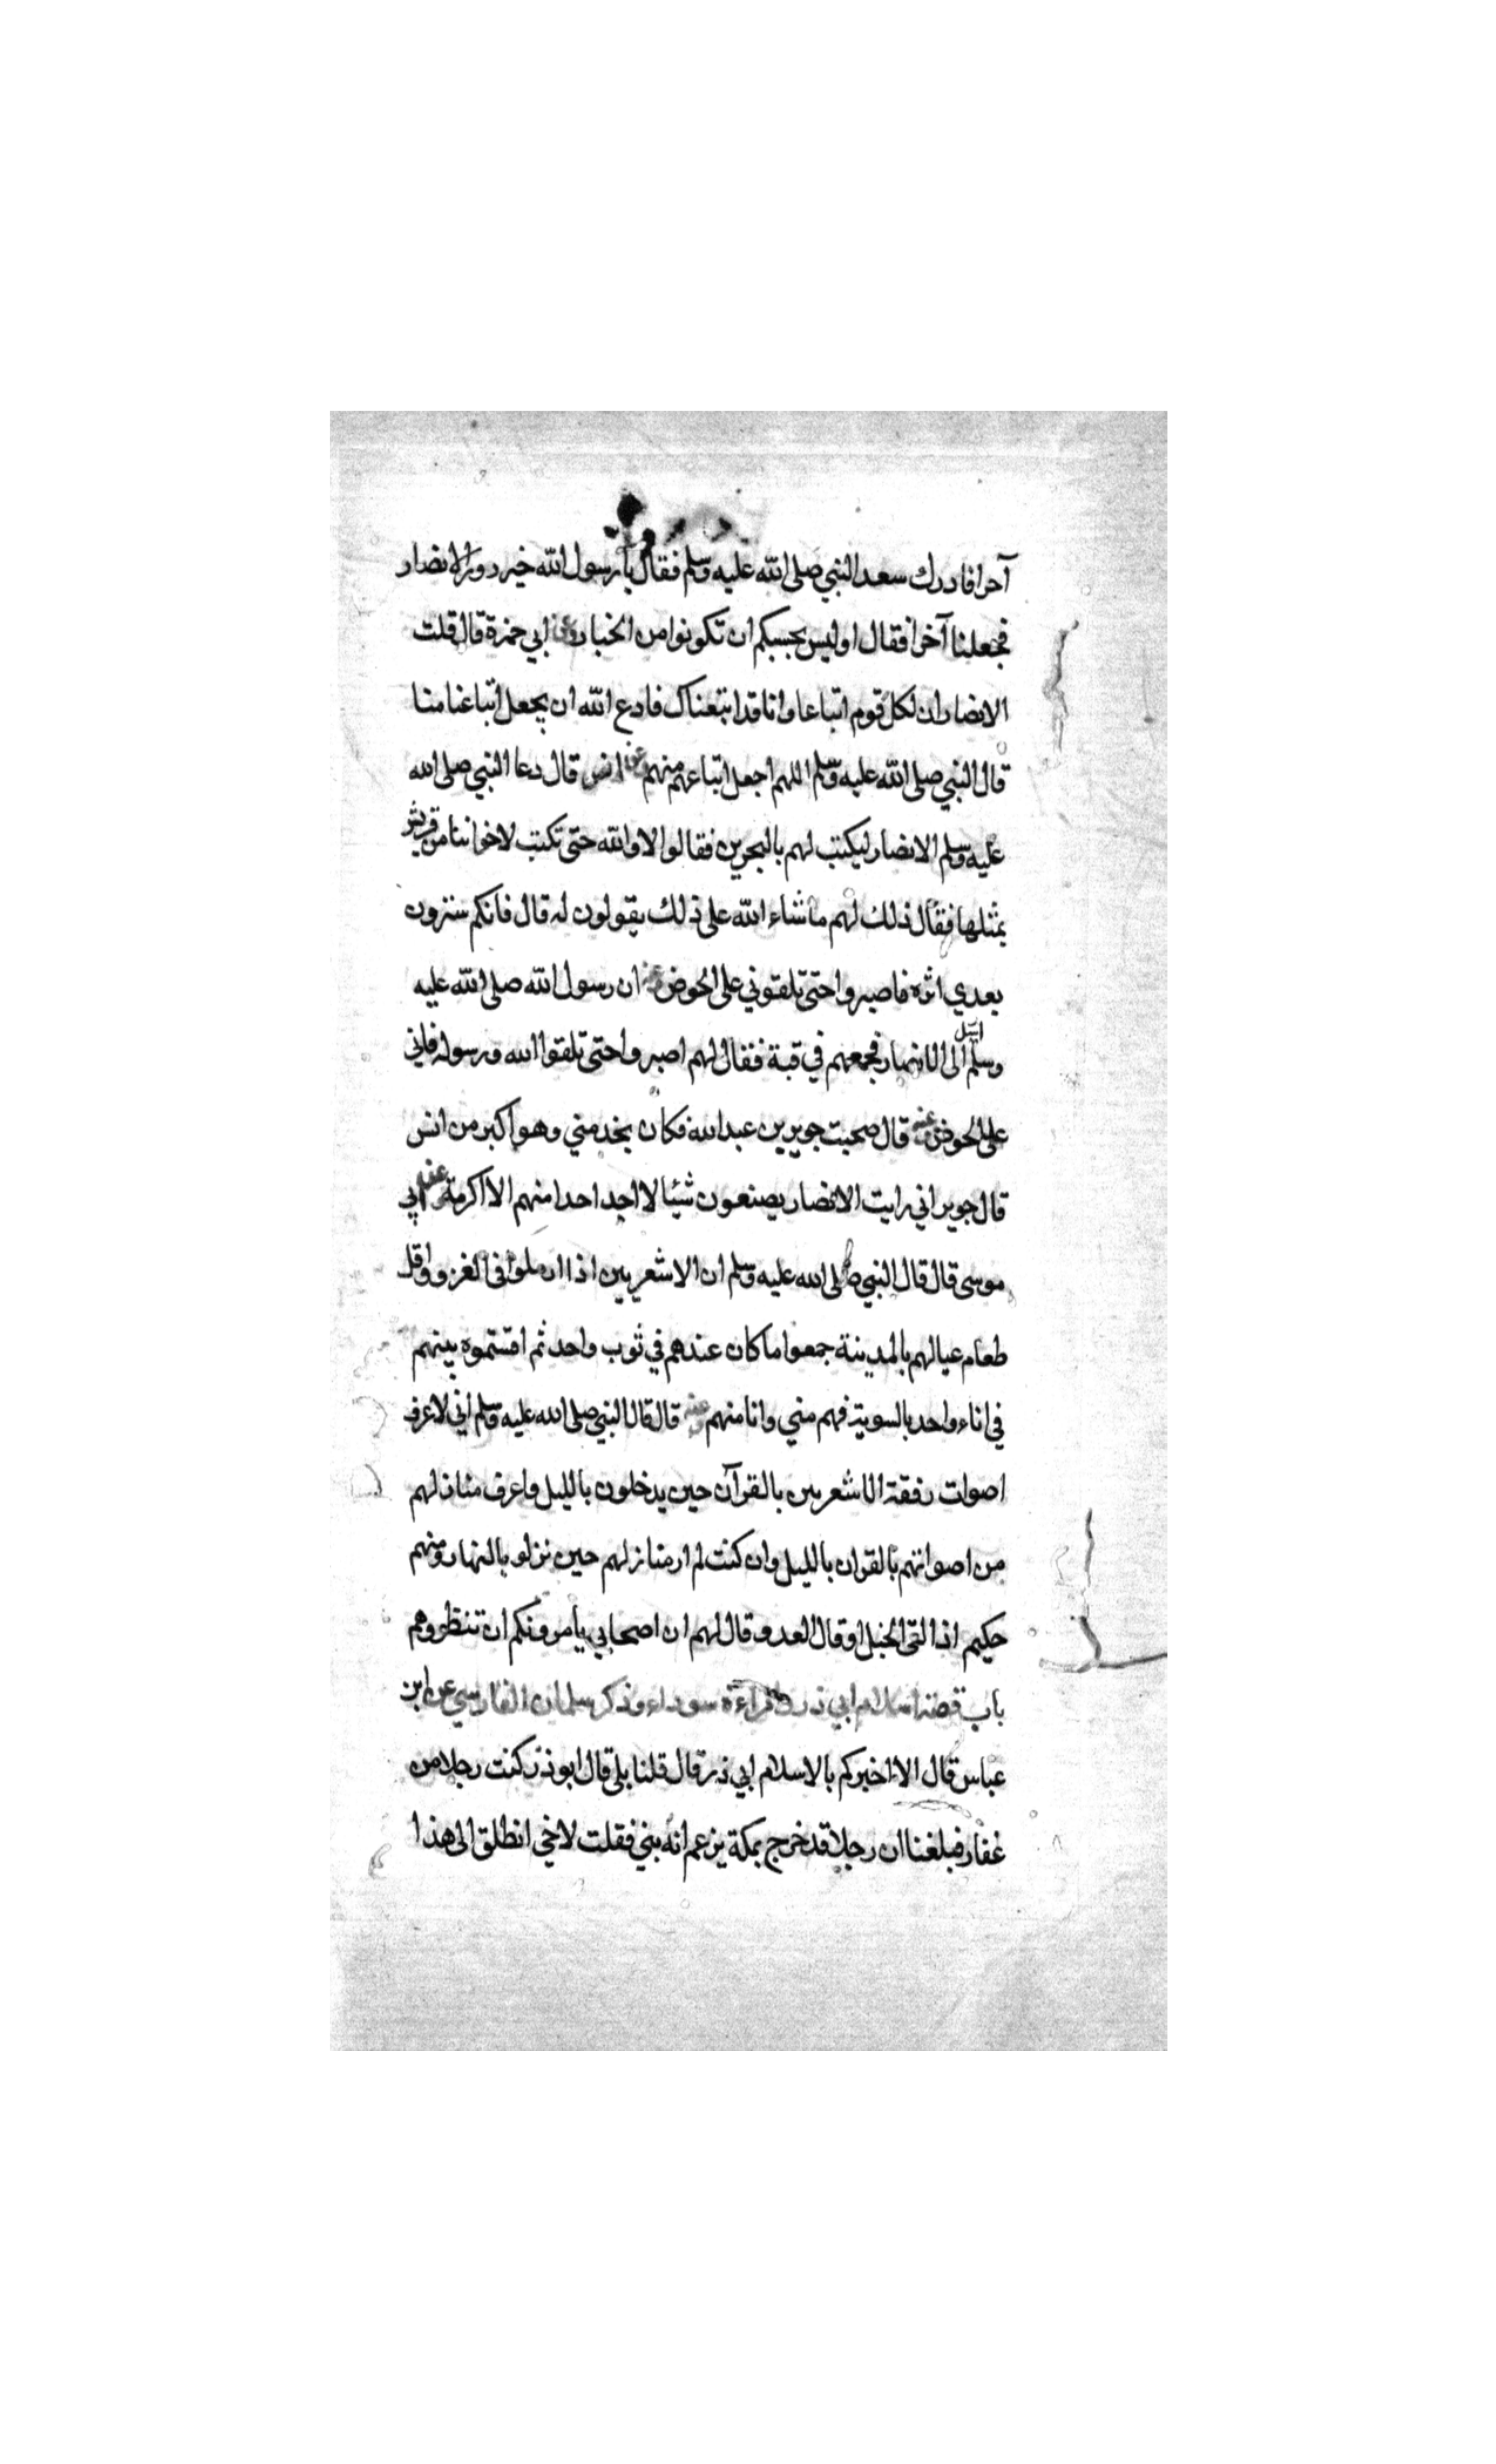 آخرا فادرك سعد النبي صلى الله عليه وسلم فقال يا رسول الله خير دور الانصار
فجعلنا آخرا فقال اوليس بحسبكم ان تكونوا من الخيار عن ابي حمزة قال قلت
الانصار ان لكل قوم اتباعا وانا قد اتبعناك فادع الله ان يجعل اتباعنا منا
قال النبي صلى الله عليه وسلم اللهم اجعل اتباعهم منهم عن انس قال دعا النبي صلى الله
عليه وسلم الانصار ليكتب لهم بالبحرين فقالوا لا والله حتى تكتب لاخواننا من قريش
بمثلها فقال ذلك لهم ما شاء الله على ذلك يقولون له قال فانكم سترون
بعدي اثره فاصبروا حتى تلقوني على الحوض ان رسول الله صلى الله عليه
وسلم ارسل الى الانصار فجمعهم في قبة فقال لهم اصبروا حتى تلقوا الله ورسوله فاني
على الحوض عنه قال صحبت جوير بن عبد الله فكان يخدمني وهو اكبر من انس
قال جوير اني رايت الانصار يصنعون شيئا لا اجد احدا منهم الا اكرمة عن ابي
موسى قال قال النبي صلى الله عليه وسلم ان الاشعريين اذا ارملوا في الغزو وقل
طعام عيالهم بالمدينة جمعوا ما كان عندهم في ثوب واحد ثم اقتسموه بينهم
في اناء واحد بالسوية فهم مني وانا منهم عنه قال قال النبي صلى الله عليه وسلم اني لاعرف
اصوات رفقة الاشعريين بالقرآن حين يدخلون بالليل واعرف منازلهم
من اصواتهم بالقران بالليل وان كنت لم ار منازلهم حين نزلو بالنهار ومنهم
حكيم اذا لقى الخيل او قال العدو قال لهم ان اصحابي يأمرونكم ان تنظروهم
باب قصة اسلام ابي ذر سوداء وذكر سلمان الفارسي عن ابن
عباس قال الا اخبركم بالاسلام ابي ذر قال قلنا بلى قال ابو ذر كنت رجلا من
غفار فبلغنا ان رجلا قد خرج بمكة يزعم انه نبي فقلت لاخي انطلق الى هذا